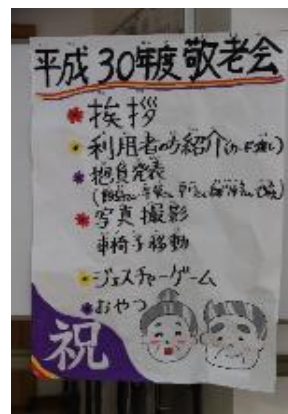 平成30年度 敬老会
挨拶
利用者の方紹介(カード渡し)
抱負発表
写真撮影
車椅子移動
ジェスチャーゲーム
おやつ
祝